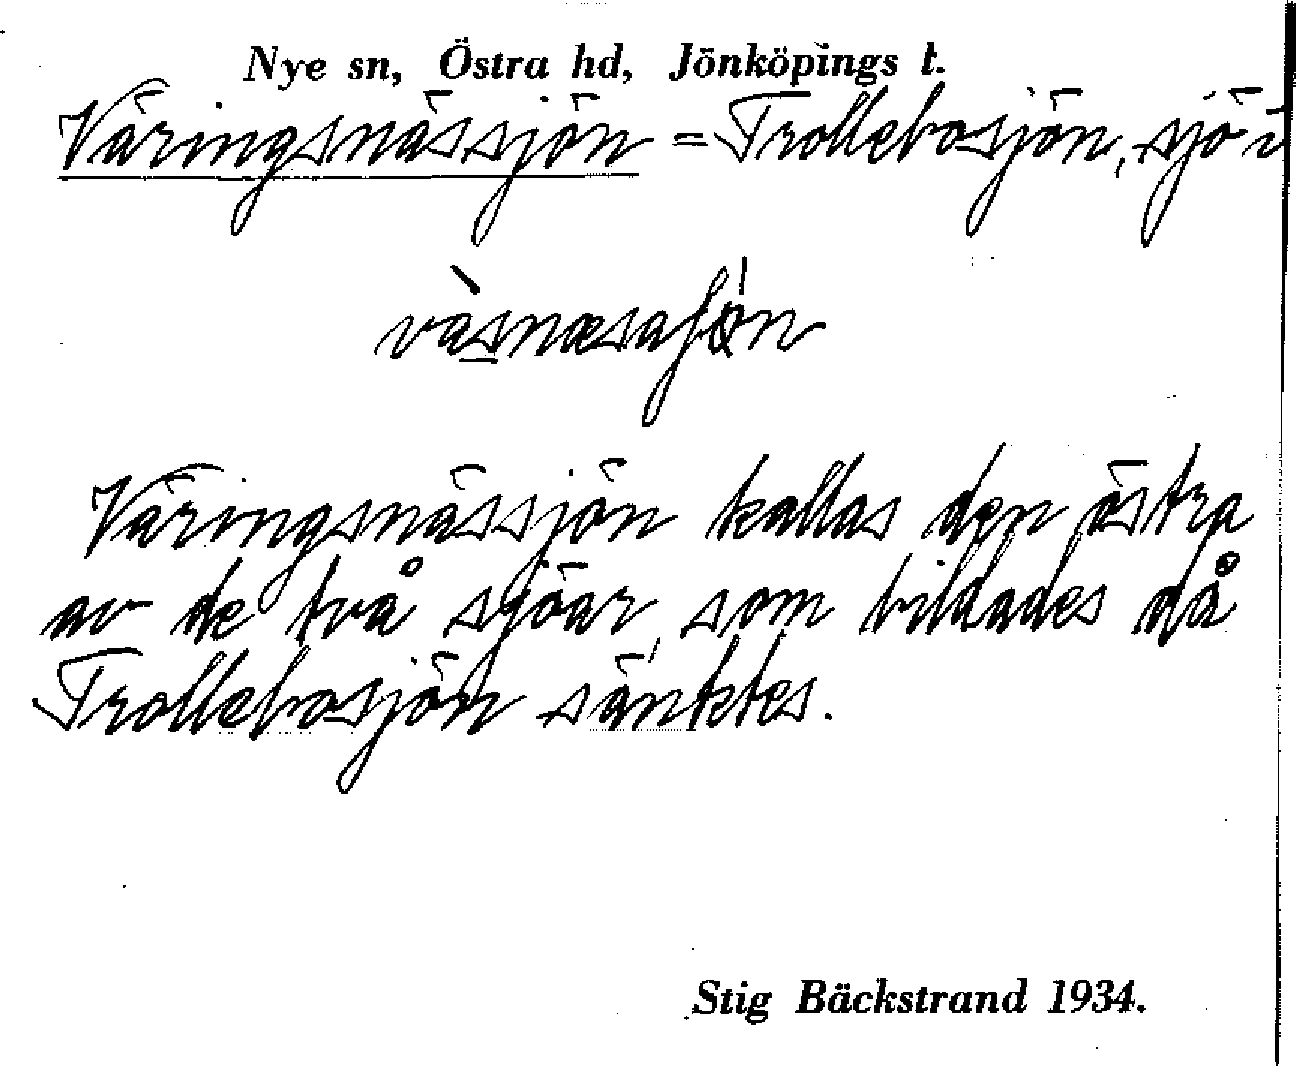 Nye sn, Östra hd, Jönköpings l.
Väringsnässjön = Trollebosjön, sjö i
Väringsnässjön kallas den östra
av de två sjöar, som bildades då
Trollebosjön sänktes.
Stig Bäckstrand 1934.